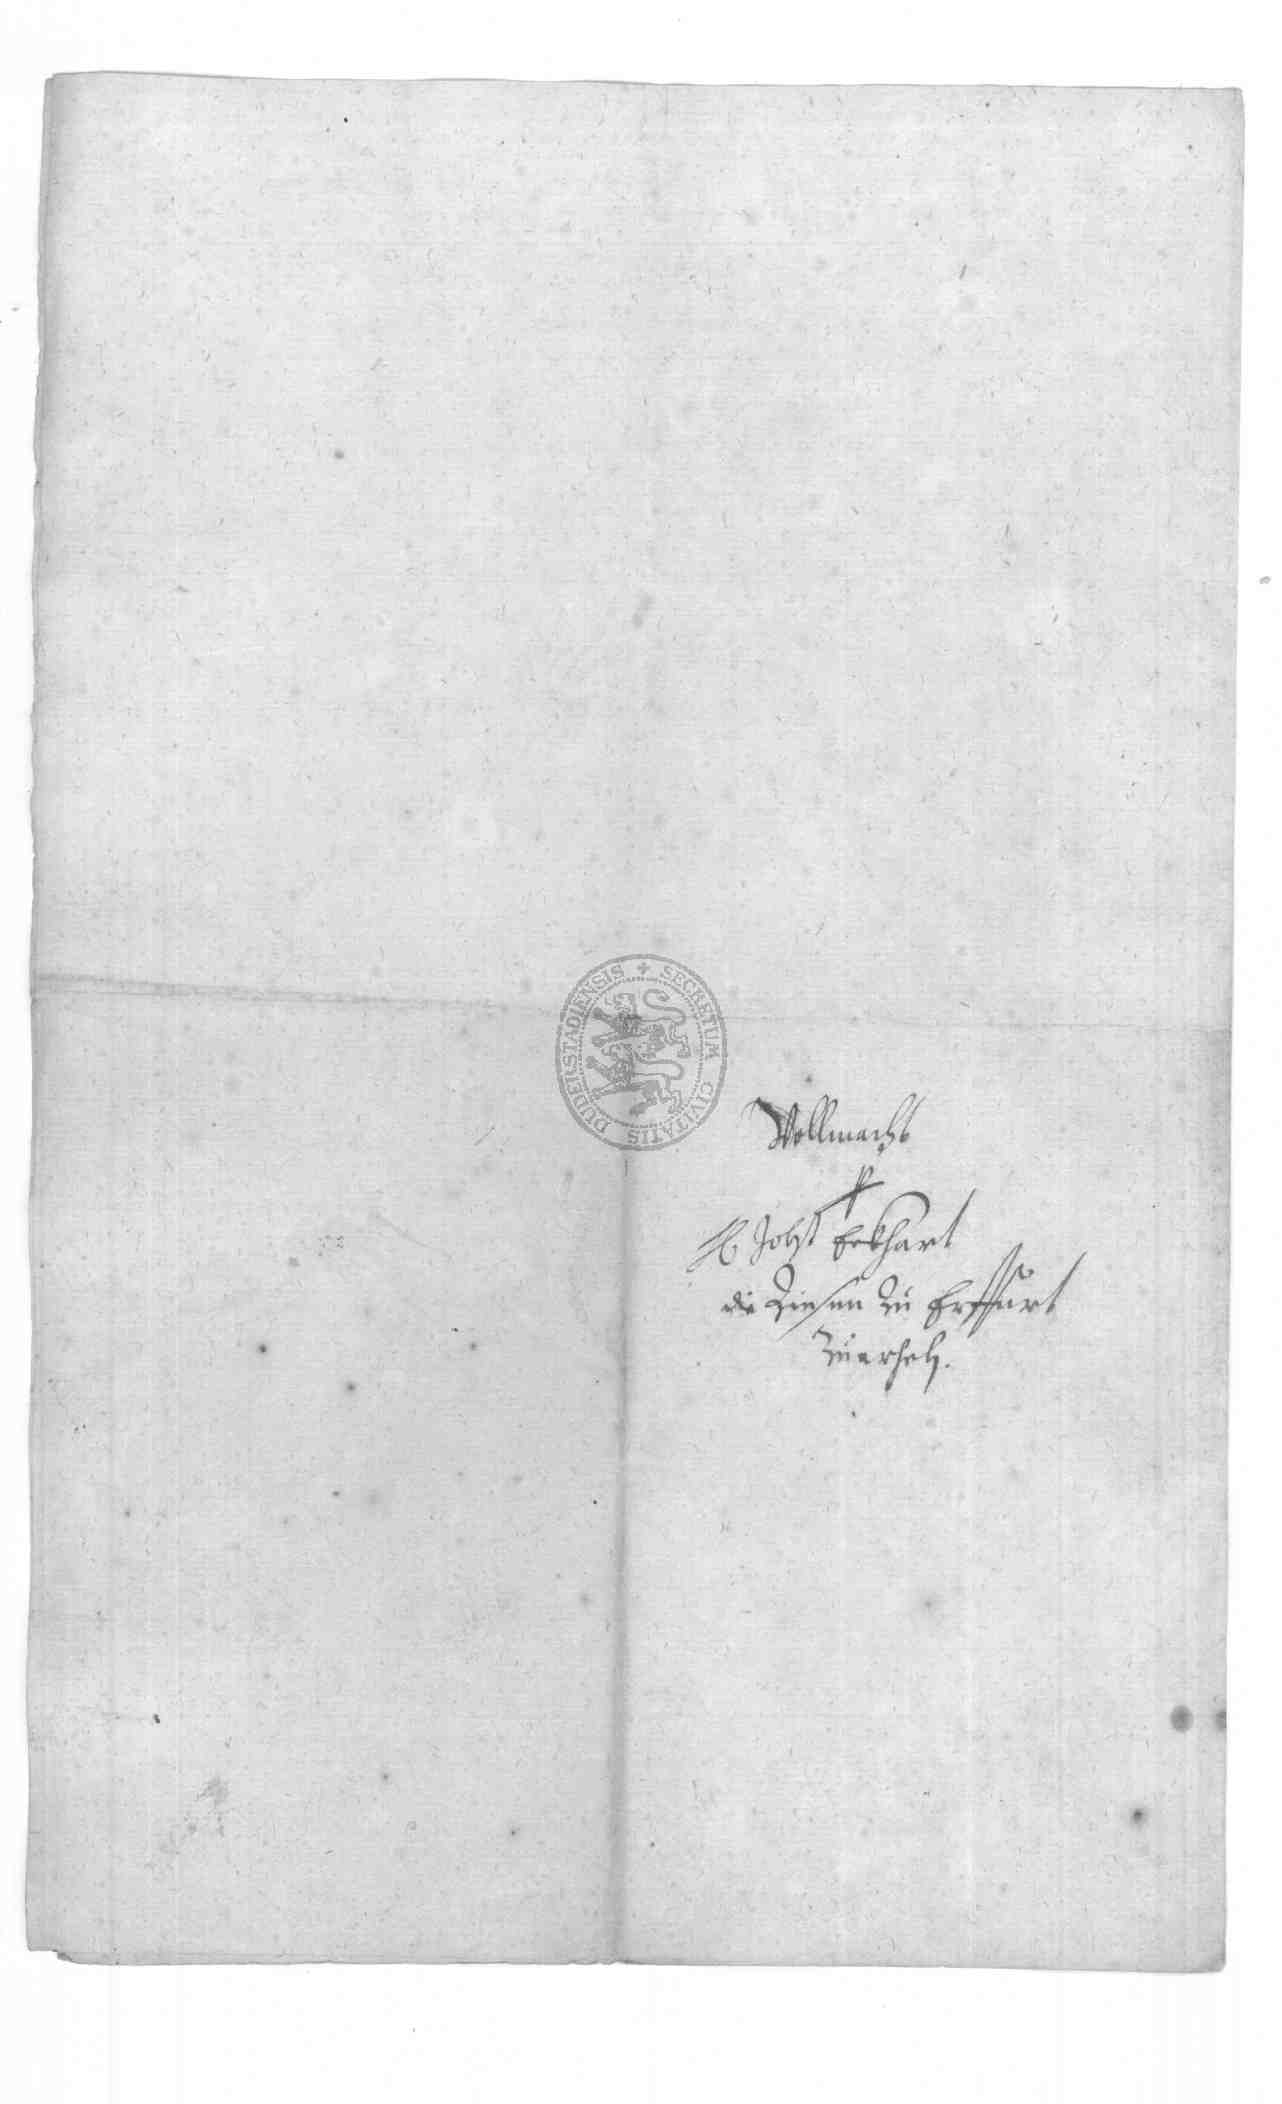 SECRETUM CIVITATIS DUDERSTADIENSIS
Vollmacht
H Jobst Eckhart
die Zinsen zu Erffurt
zu erheb.